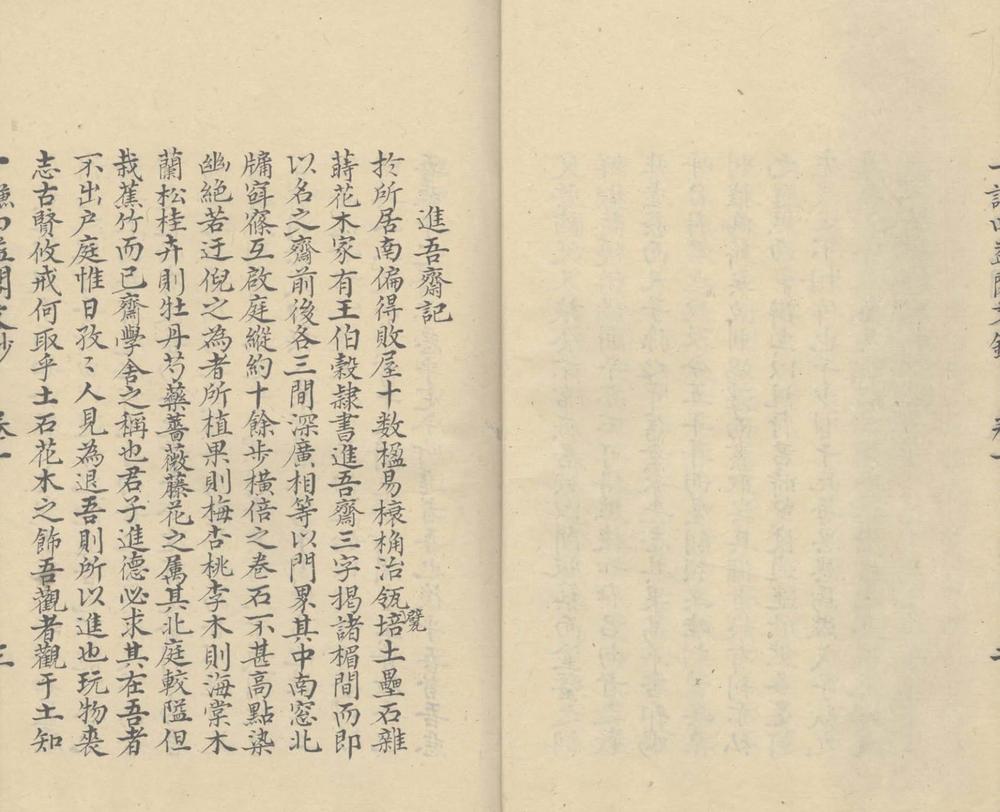 進吾齋記
於所居南偏得敗屋十數楹易榱桷治瓴甓培土壘石雜
蒔花木家有王伯穀隸書進吾齋三字揭諸楣間而即
以名之齋前後各三間深廣相等以門界其中南窓北
牖窔窱互啟庭縱約十餘步橫倍之卷石不甚高點染
幽絕若迂倪之為者所植果則梅杏桃李木則海棠木
蘭松桂卉則牡丹芍藥薔薇藤花之屬其北庭較隘但
栽蕉竹而已齋學舍之稱也君子進德必求其在吾者
不出户庭惟日孜〻人見為退吾則所以進也玩物喪
志古賢攸戒何取乎土石花木之飾吾觀者觀于土知